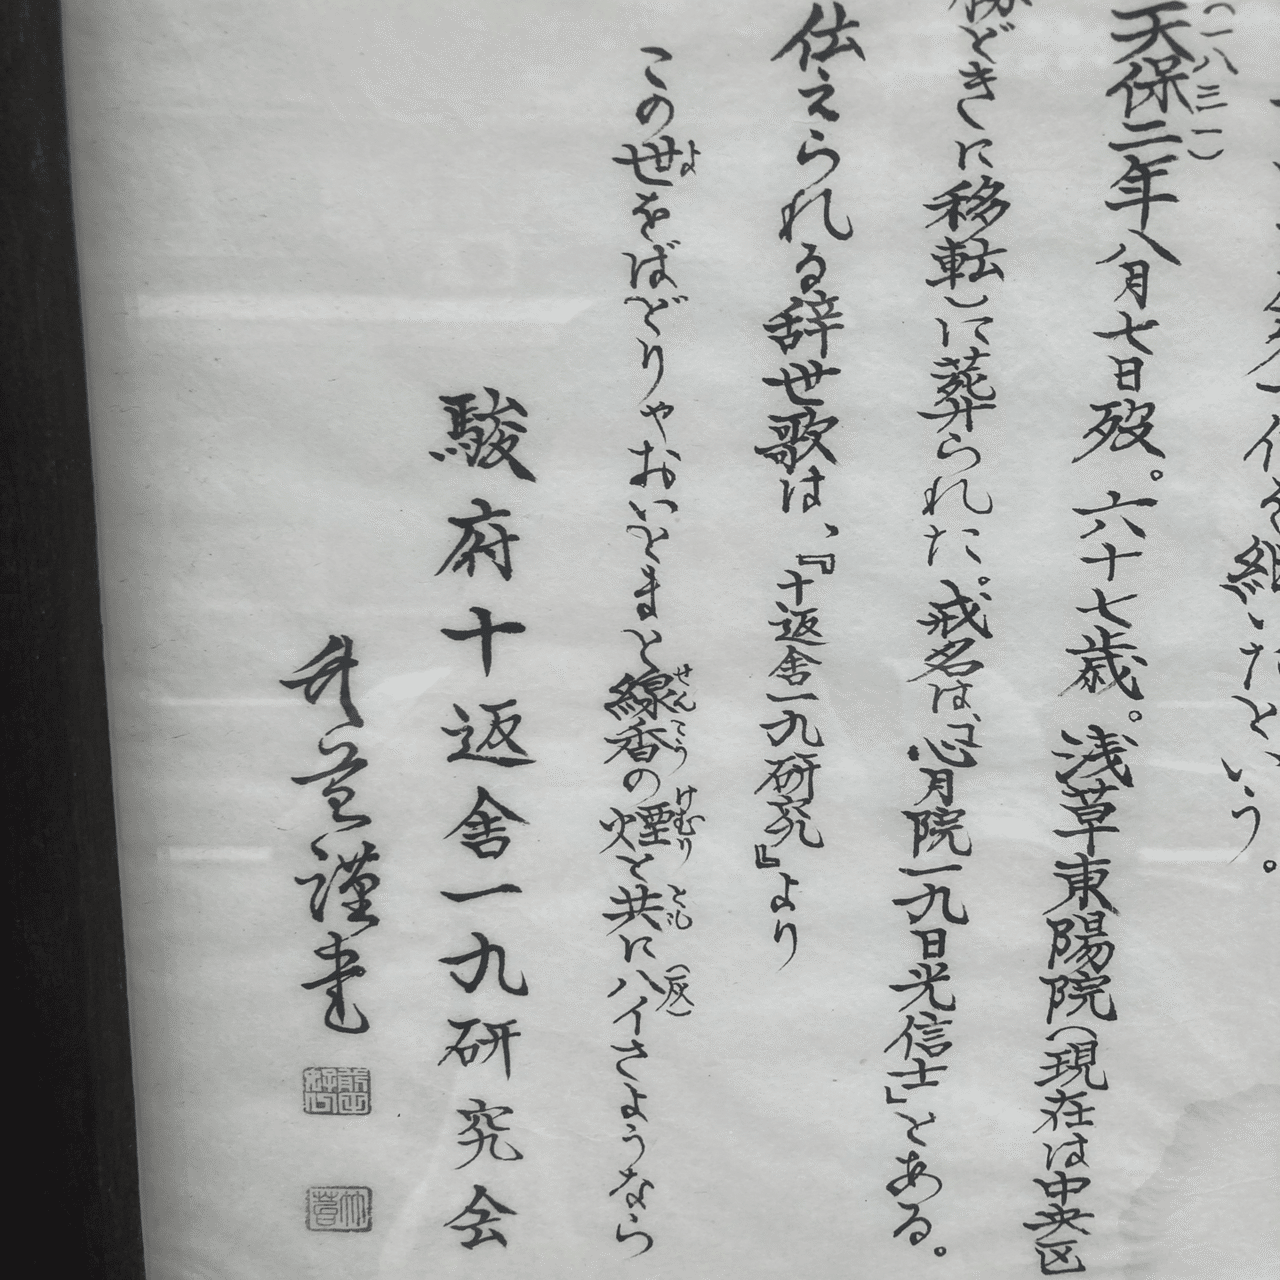 を継いだという。
天保二年(一八三一)八月七日歿。六十七歳。浅草東陽院(現在は中央区
どきに移転)に葬られた。戒名は、「心月院一九日光信士」とある。
伝えられる辞世歌は、『十返舎一九研究』より
この世をばどりやおいとまと線香の煙と共にハイ(灰)さようなら
駿府十返舎一九研究会
謹書